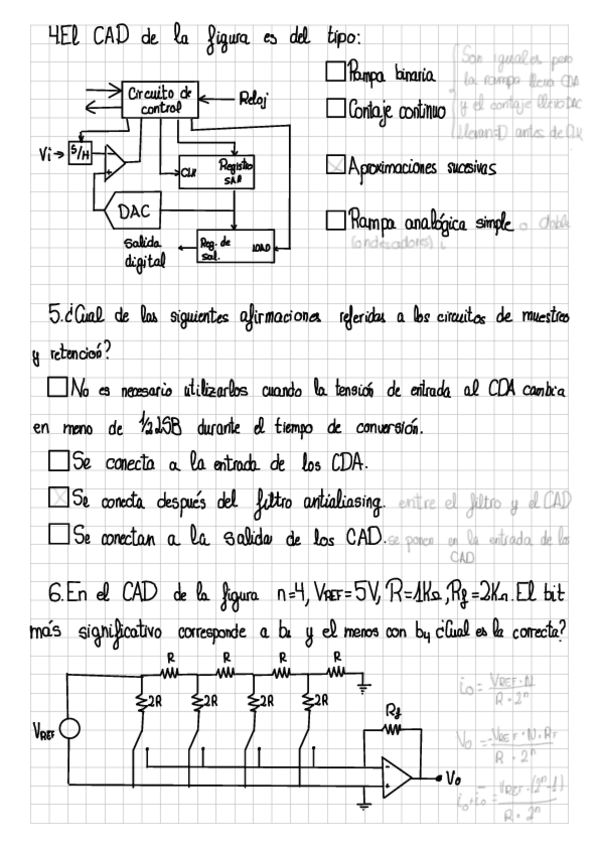 4El CAD de la figura es del tipo:
Rampa binaria
Contaje continuo
Aproximaciones sucesivas
Rampa analógica simple o doble
Son iguales pero
la rampa lleva CDA
y el contaje lleva DAC
(condensadores)
Circuito de
control
Reloj
Vi
S/H
-
+
CLK
Registro
SAR
DAC
Salida
digital
Reg. de
sal.
LOAD
5.¿Cual de las siguientes afirmaciones referidas a los circuitos de muestreo
y retención?
No es necesario utilizarlos cuando la tensión de entrada al CDA cambia
en meno de 1/2 LSB durante el tiempo de conversión.
Se conecta a la entrada de los CDA.
Se conecta después del filtro antialiasing. entre el filtro y el CAD
Se conectan a la salida de los CAD. se ponen en la entrada de los
CAD
6.En el CAD de la figura n=4, VREF=5V, R=1KΩ, Rf=2KΩ. El bit
más significativo corresponde a b1 y el menos con b4 ¿Cual es la correcta?
R R R R
2R 2R 2R 2R
VREF
Rf
-
+
Vo
io = VREF·N / R·2ⁿ
Vo = -VREF·N·Rf / R·2ⁿ
io+io = VREF·(2ⁿ-1) / R·2ⁿ